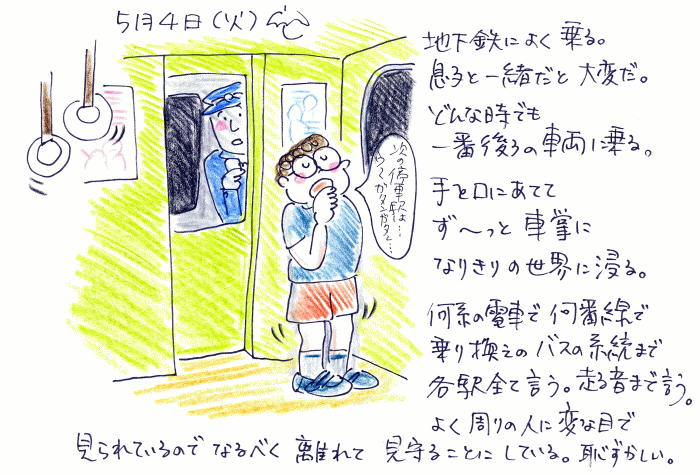 5月4日（火）
次の停車駅は…
ら〜〜ガタンガタン…
地下鉄によく乗る。
息子と一緒だと大変だ。
どんな時でも
一番後ろの車両に乗る。
手を口にあてて
ず〜っと車掌に
なりきりの世界に浸る。
何系の電車で何番線で
乗り換えのバスの系統まで
各駅全て言う。走る音まで言う。
よく周りの人に変な目で
見られているのでなるべく離れて見守ることにしている。恥ずかしい。